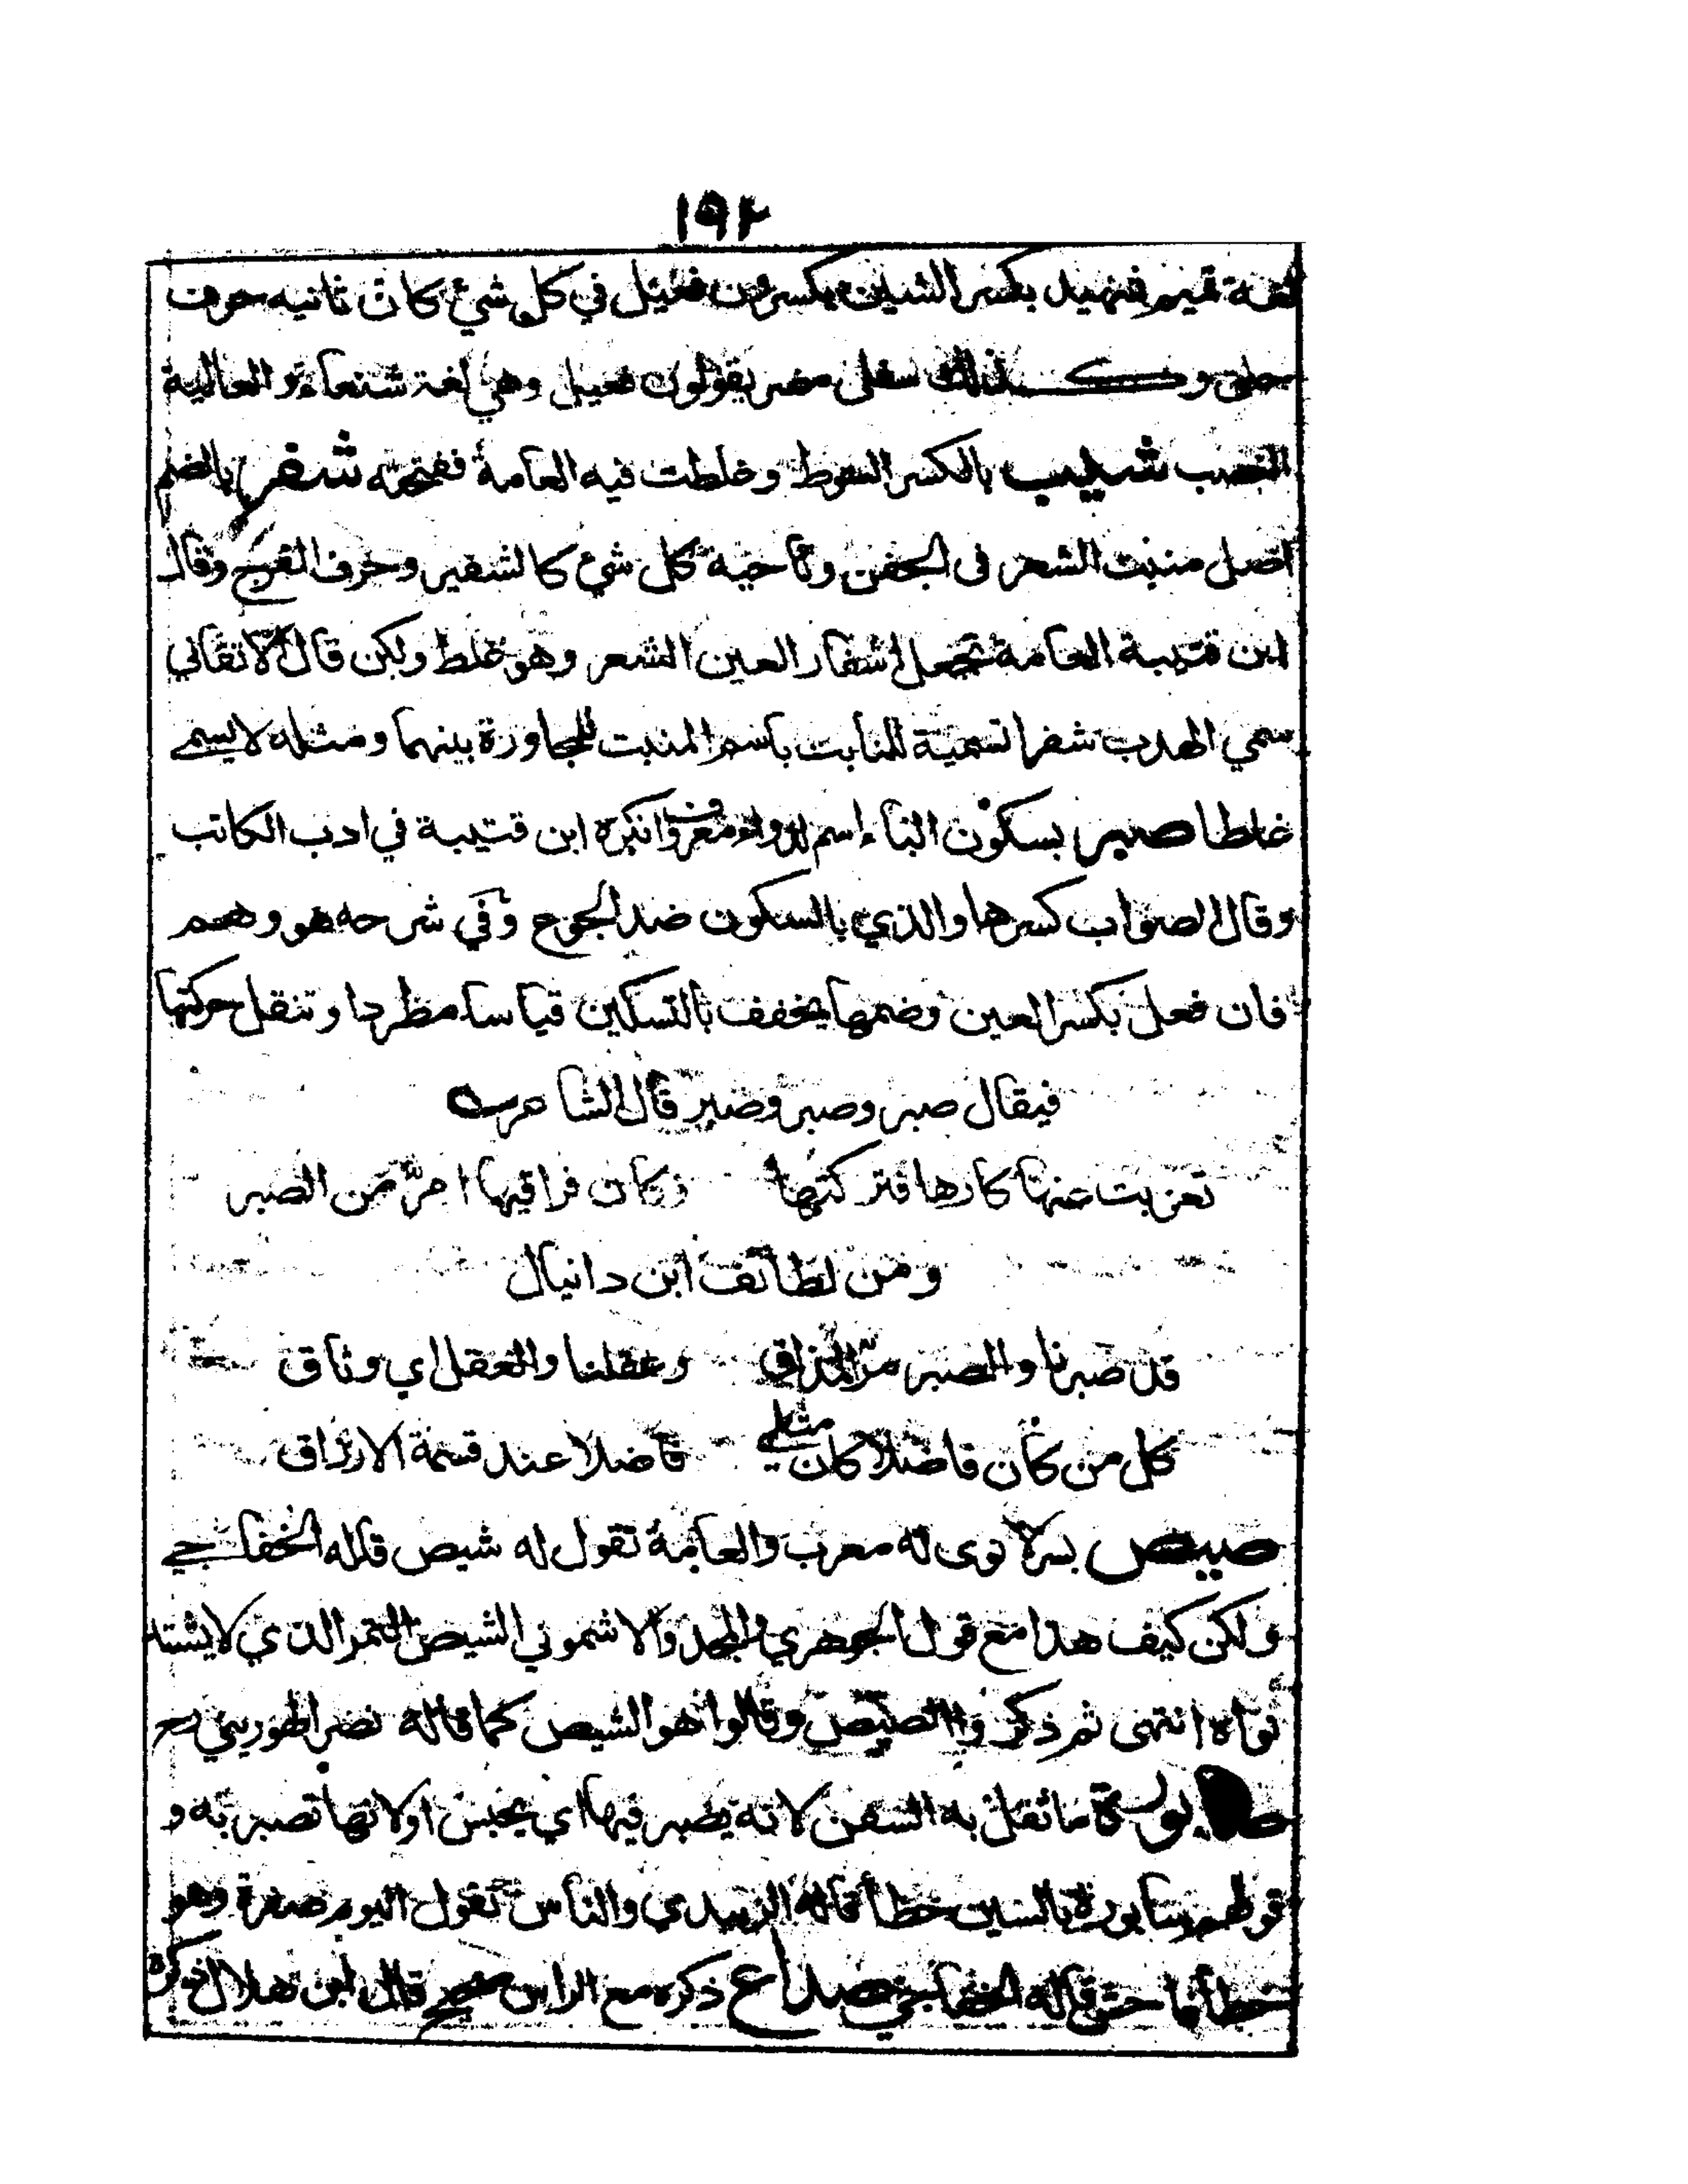 ١٩٢
لغة تميم فشهيد بكسر الشين يكسرون فعيل في كل شئ كان ثانيه حرف
حلق وكذلك سفلى مضر يقولون فعيل وهي لغة شنعاء والعالية
النصب شليب بالكسر السوط وغلطت فيه العامة ففتحته شفر بالضم
اصل منبت الشعر فى الجفن وناحية كل شئ كالشفير وحرف الفرج وقال
ابن قتيبة العامة تجعل اشفار العين الشعر وهو غلط ولكن قال الاتقاني
سمي الهدب شفرا تسمية للنابت باسم المنبت للمجاورة بينهما ومثله لا يسمى
غلطا صبر بسكون الباء إسم لدواء معروف وانكره ابن قتيبة في ادب الكاتب
وقال الصواب كسرها والذي بالسكون ضد الجزع وفي شرحه هو وهم
فان فعل بكسر العين وضمها يخفف بالتسكين قياسا مطردا وتنقل حركتها
فيقال صبر وصبر وصبر قال الشاعر
تعزيت عنها كارها فتركتها وكان فراقيها امرّ من الصبر
ومن لطائف ابن دانيال
قد صبرنا والصبر مرّ المذاق وعقلنا والعقل اي وثاق
كل من كان فاضلا كان مثلي فاضلا عند قسمة الارزاق
صيص بسر لا نوى له معرب والعامة تقول له شيص قاله الخفاجي
ولكن كيف هذا مع قول الجوهري والمجد والاشموني الشيص التمر الذي لا يشتد
نواه انتهى ثم ذكروا الصيص وقالوا هو الشيص كما قاله نصر الهوريني رح
صابورة ما تثقل به السفن لانه يصبر فيها اي يحبس او لانها تصبر به و
قولهم سابورة بالسين خطأ قاله الزبيدي والناس تقول اليوم صغرة وهو
خطأ فاحش قاله الخفاجي صداع ذكره مع الراس قال ابن هلال ذكره